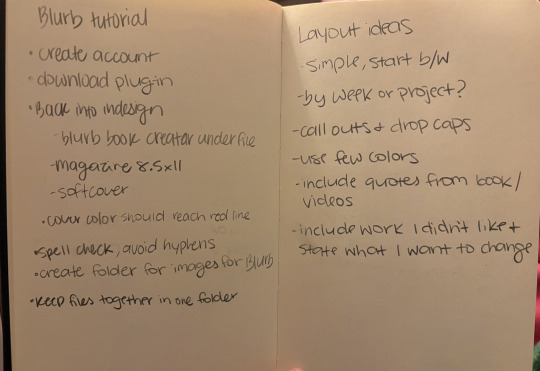 Blurb tutorial
• create account
• download plugin
• Back into indesign
- blurb book creator under file
- magazine 8.5x11
- softcover
• cover color should reach red line
• spell check, avoid hyphens
• create folder for images for Blurb
• keep files together in one folder
Layout ideas
- simple, start b/w
- by week or project?
- call outs + drop caps
- use few colors
- include quotes from book/
videos
- include work I didn't like +
state what I want to change